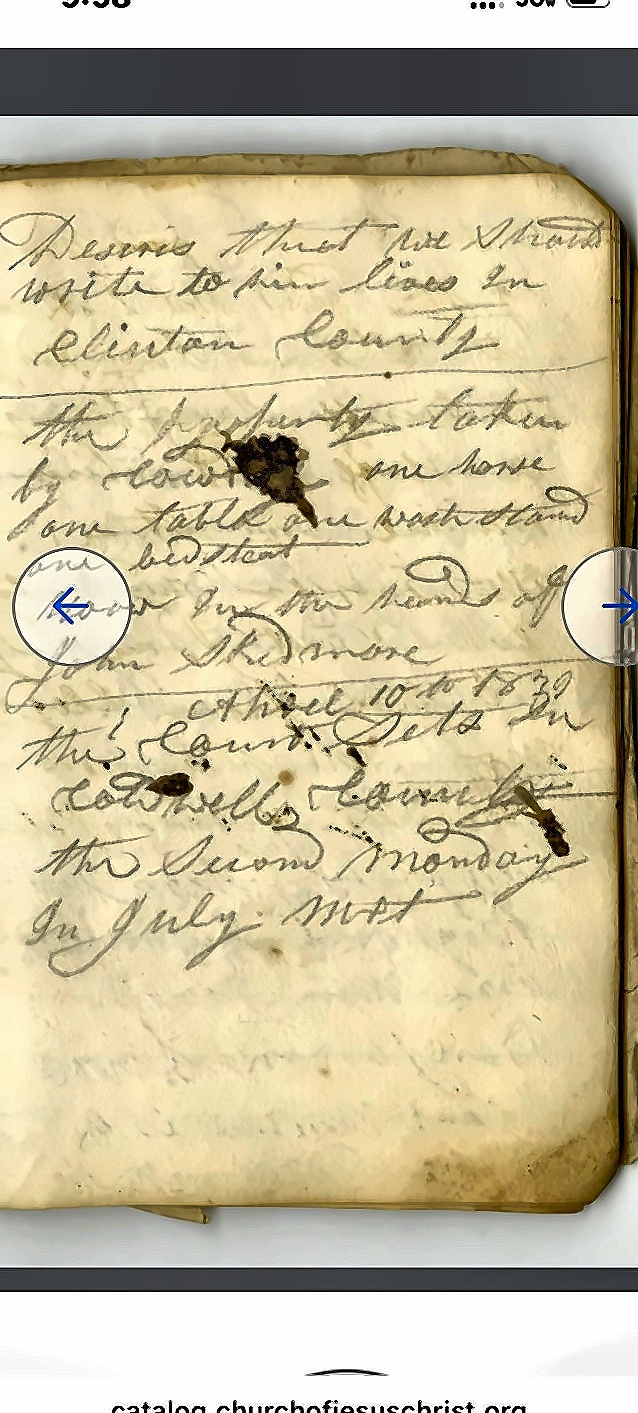 9:58
50W
Desiris that we should
write to him lives In
Clinton County
the property taken
by one horse
one table one wash stand
one bedsteat
now In the hands of
John Skidmore
Aprel 10 to 1839
the Court Sets In
Coldwell County
the Second Monday
In July next
catalog.churchofjesuschrist.org